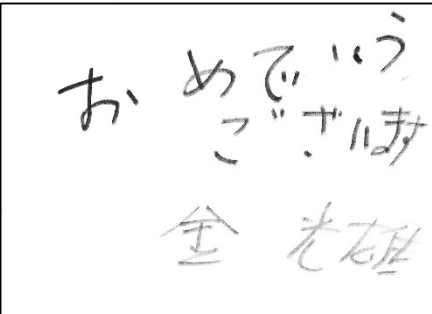 お めでいう
ございます
金 光雄